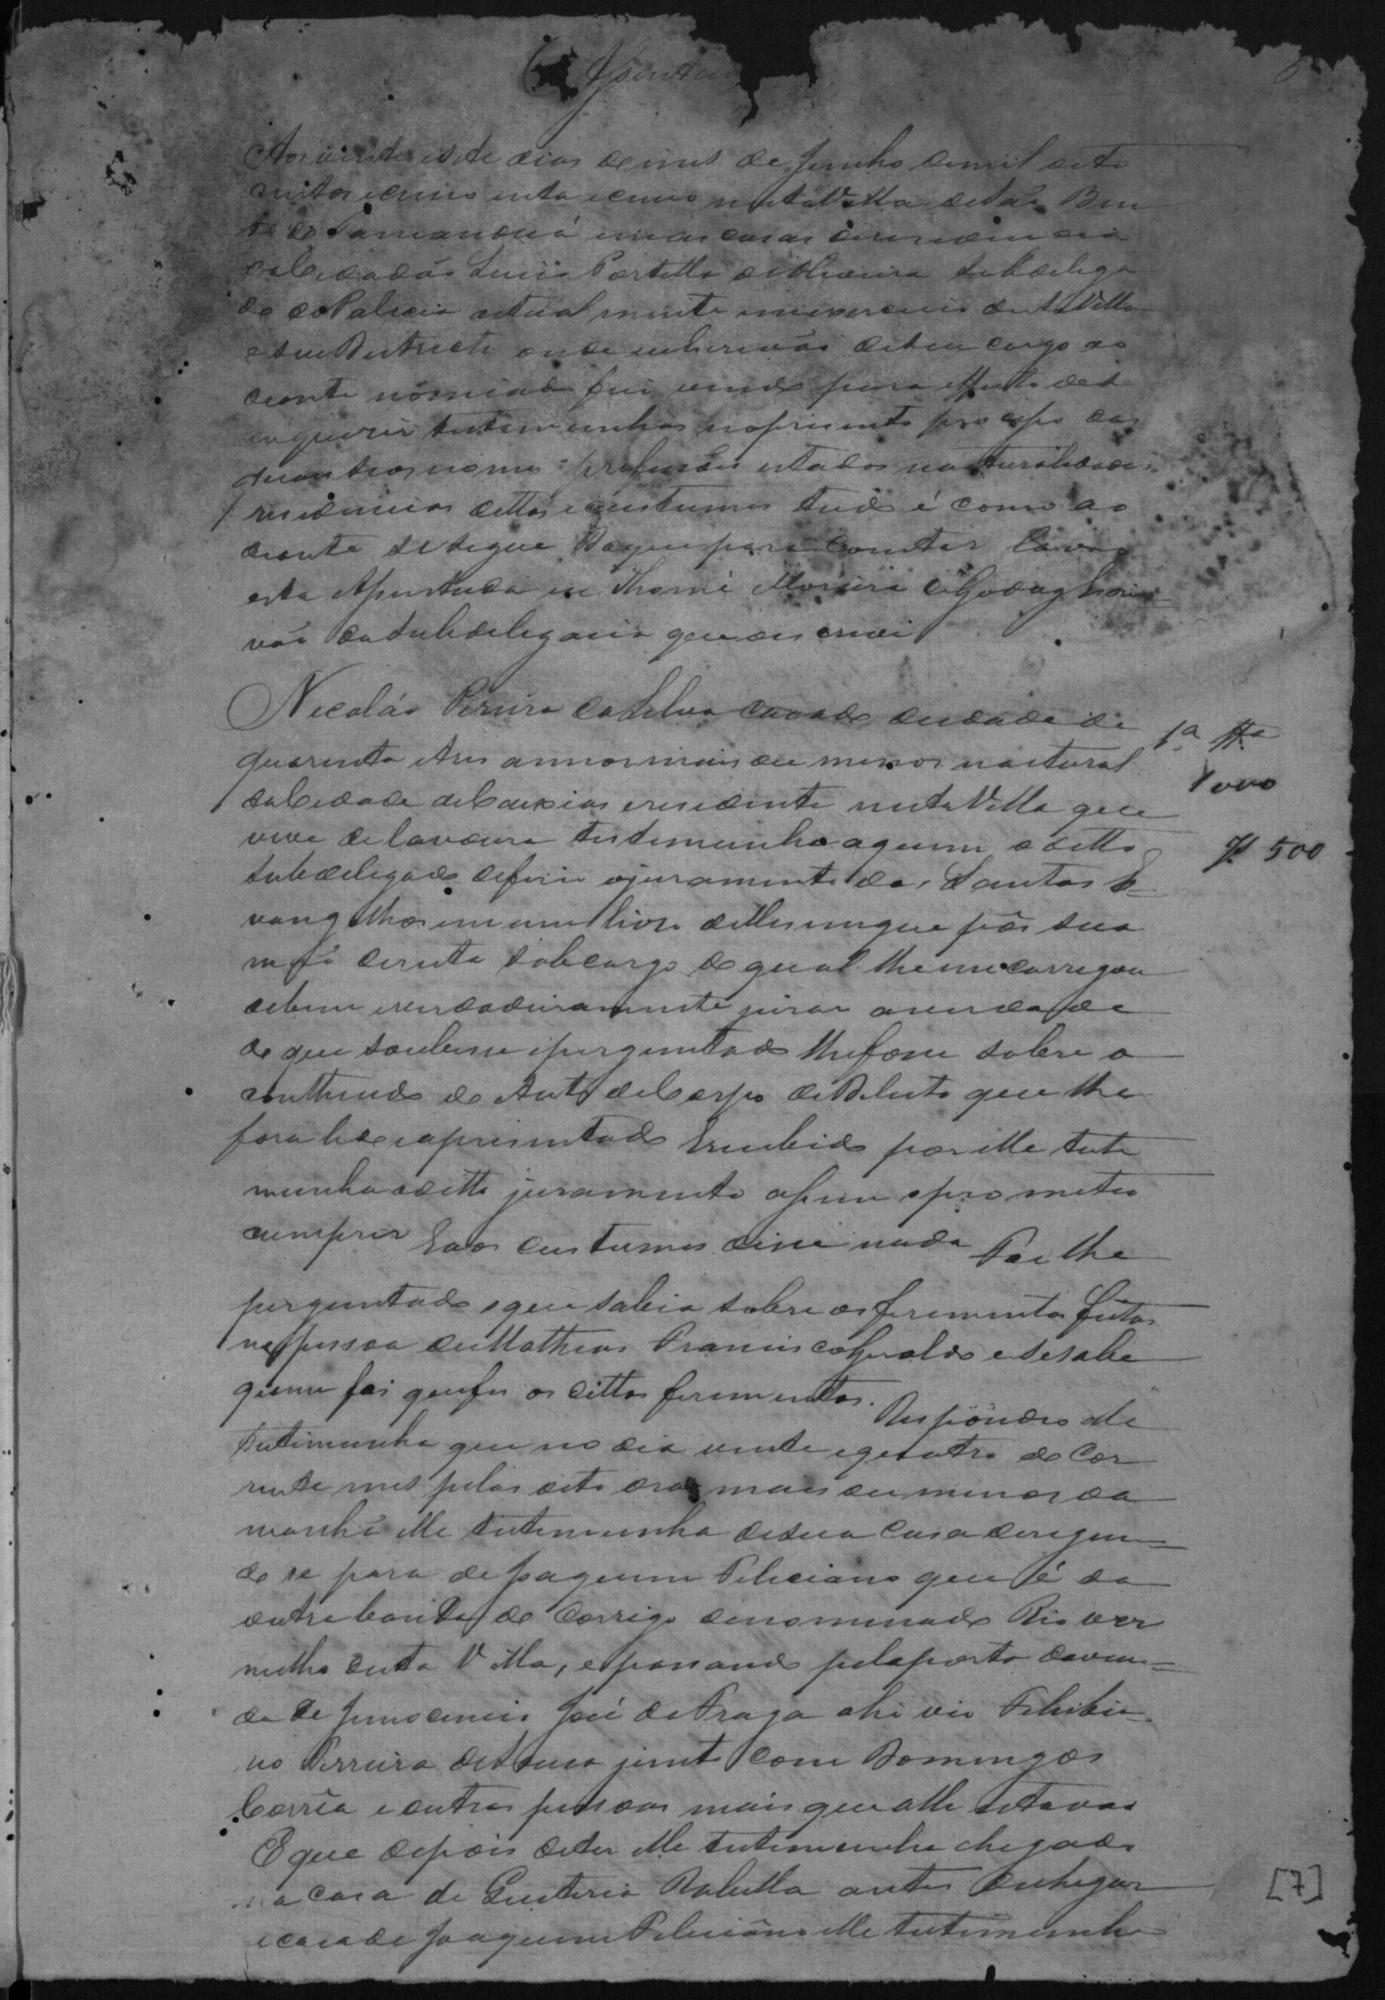 Apentada
Aos vinte e sete dias do mes de Junho de mil oito
centos e cinco enta e cinco nesta Villa de São Ben
to de Tamanduá em as casas de residencia
do Cidadão Luis Portella de Oliveira Subdelega
do de Policia actual mente em exercicio desta Villa
e seu Destricto onde eu Escrivão de seu cargo ao
diante nomiado fui vindo para effeito de se
enquerir testemunhas no prezente processo cos
nomes profições estados naturalidades
residencias dittos e custumes tudo é como ao
diante se segue Do que para constar lavro
esta Apentada eu Thomé Moreira de Godoy Escri
vão da Subdelegacia que escrevi
Necoláo Pereira da Silva cazado de idade de
quarenta e tres annos mais ou menos natural
da Cidade de Caxias e residente nesta Villa que
vive de lavoura testemunha a quem o ditto
Subdelegado deferio o juramento dos Santos E
vangelhos em um livro delles em que pôs sua
mão dereita sob cargo do qual lhe encarregou
de bem e verdadeiramente jurar a verdade
do que soubesse e perguntado lhe fosse sobre o
contheudo do Auto de Corpo de Delicto que lhe
fora lido e apresentado E recebido por elle teste
munha o ditto juramento assim o prometeo
cumprir E aos custumes disse nada Foi lhe
perguntado o que sabia sobre os ferimentos feitos
na pessoa de Matheus Francisco Geraldo e se sabe
quem foi que fes os dittos ferimentos. Respondeo elle
testemunha que no dia vinte e quatro do Cor
rente mes pelas oito oras mais ou menos da
manhã elle testemunha de sua casa derigin
do se para de Joaquim Feliciano que é da
outra banda do Corrigo denominado Rio ver
melho desta Villa, e passando pela porta da ven
da de Innocencio José de Fraga ahi vio Felisbi
no Ferreira de Sousa junto com Domingos
Corrêa e outras pessoas mais que alle estavão
E que depois de ter elle testemunha chegado
na casa de Quiteria Rabella antes de chegar
a casa de Joaquim Feliciano elle testemunha
1ª Ttª
1000
J 500
[7]